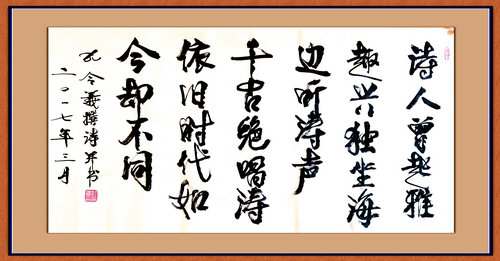 诗人曾起雅
趣兴独坐海
边听涛声
千古绝唱涛
依旧时代如
今却不同
孔令義撰诗并书
二〇一七年三月